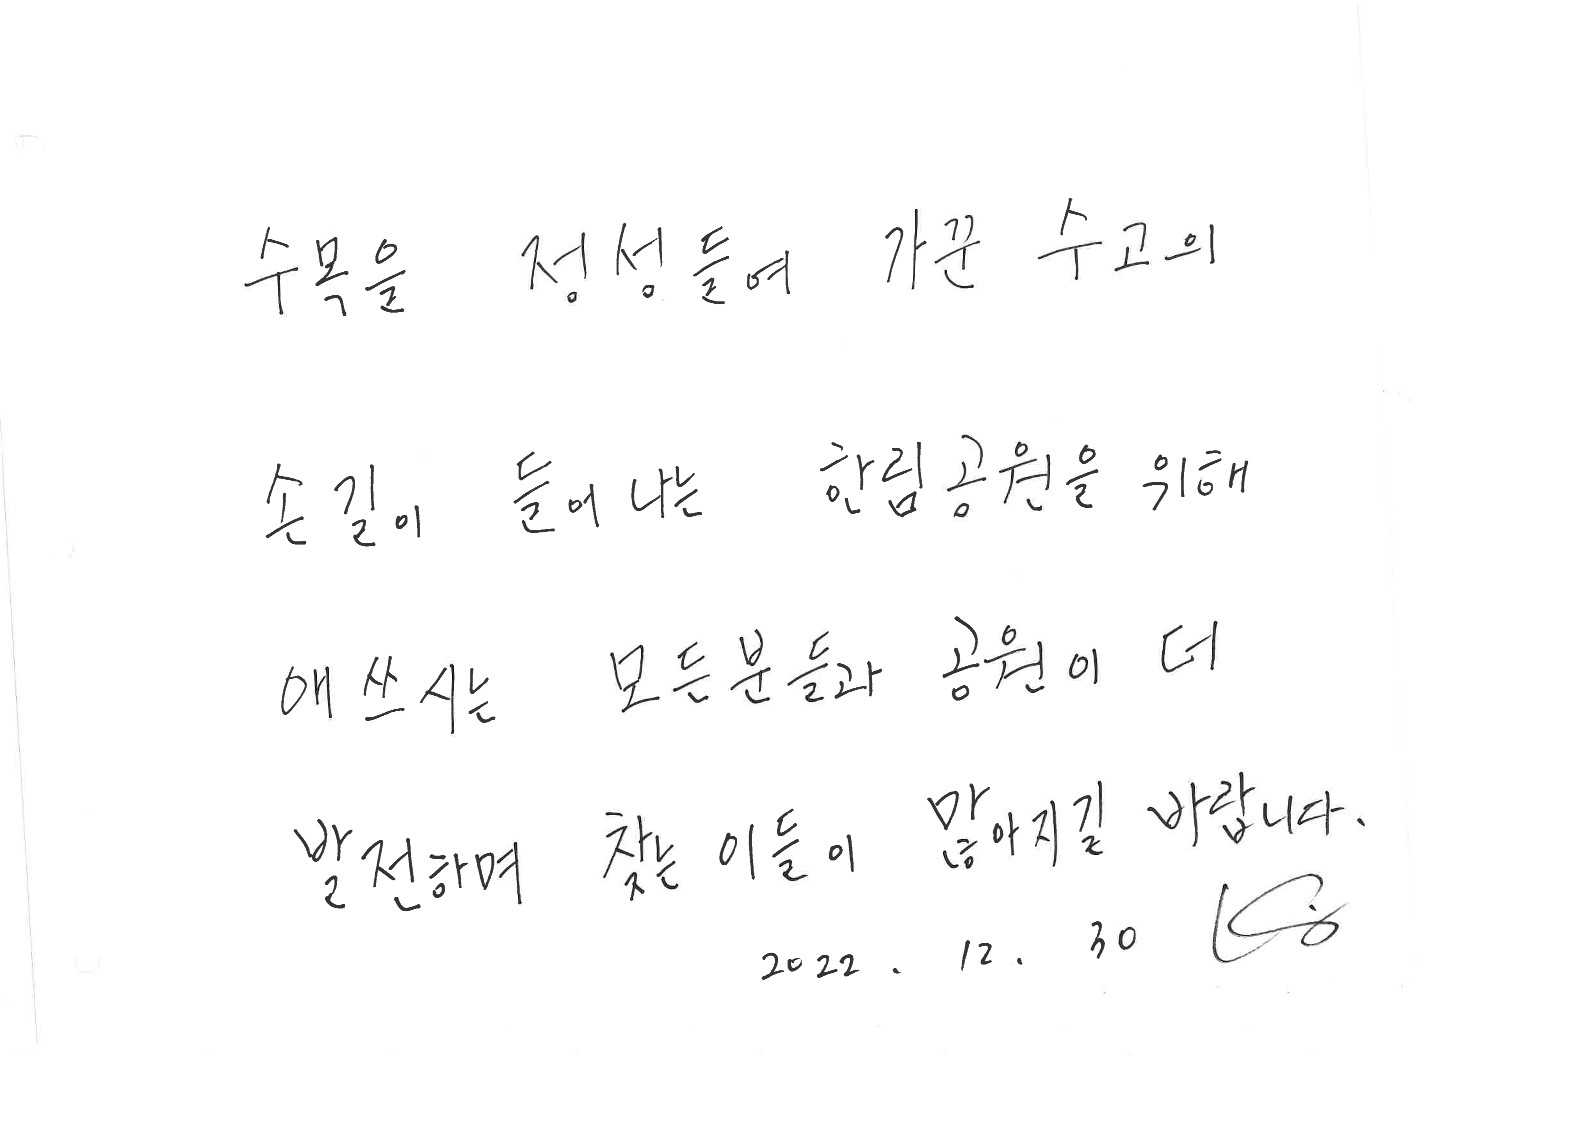 수목을 정성들여 가꾼 수고의
손길이 들어나는 한림공원을 위해
애쓰시는 모든분들과 공원이 더
발전하며 찾는 이들이 많아지길 바랍니다.
2022. 12. 30